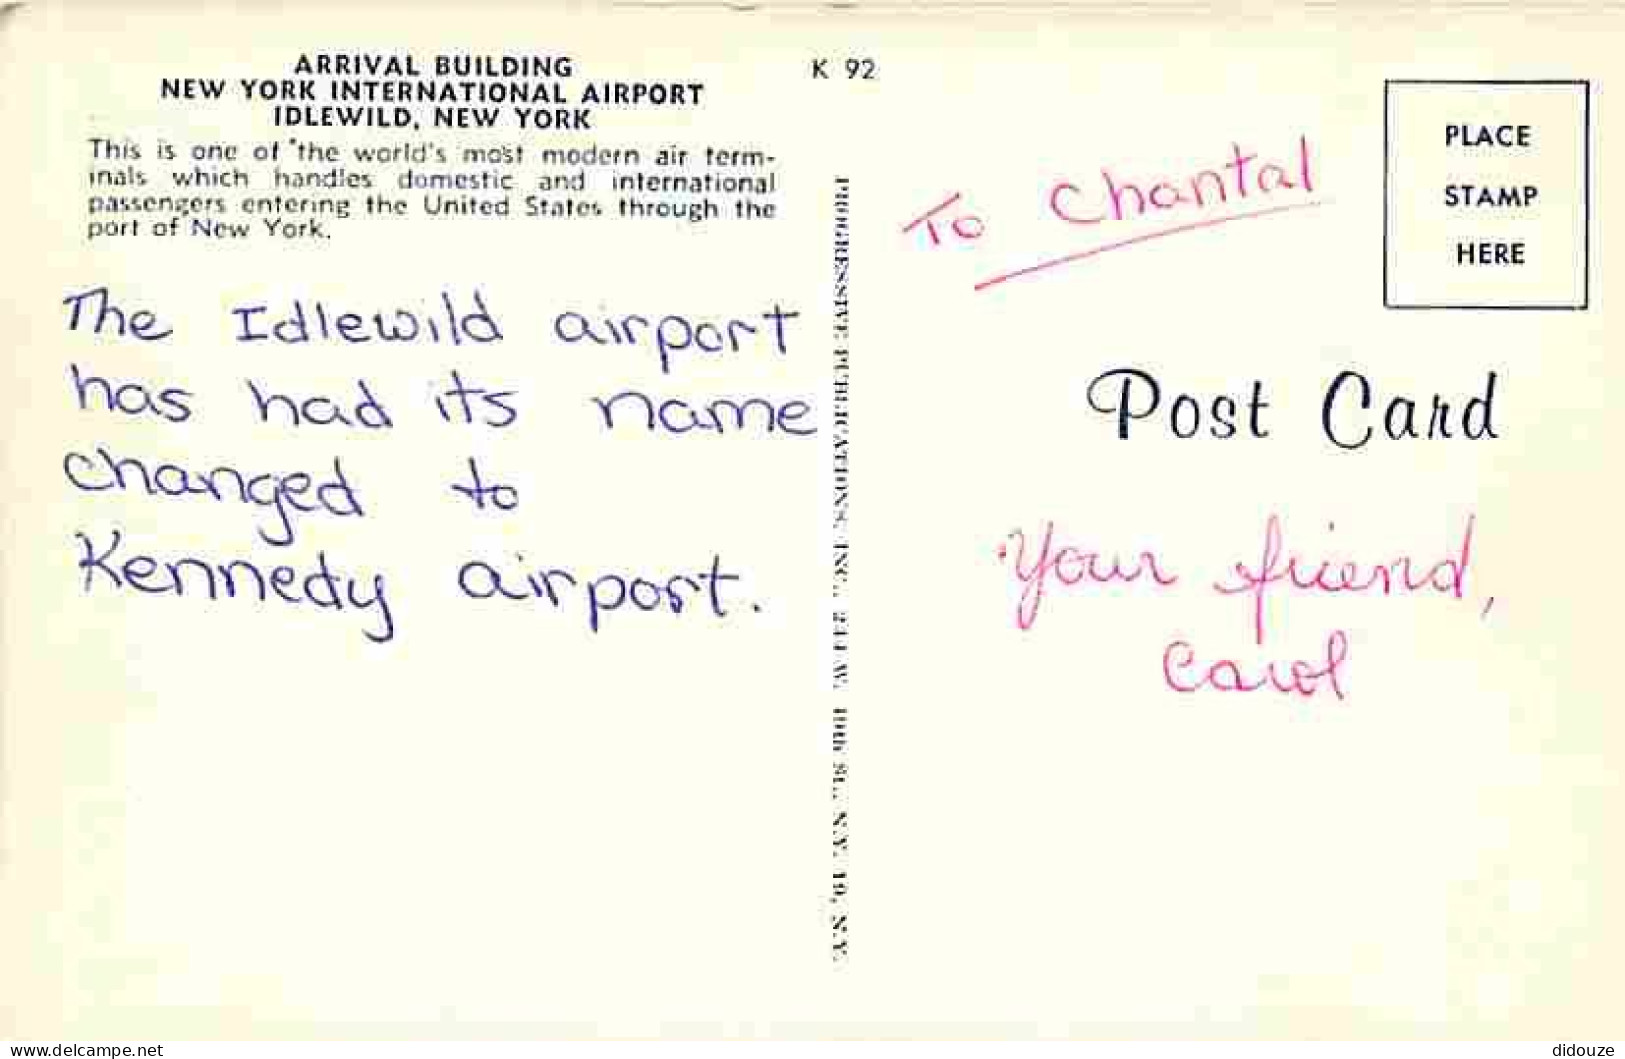 ARRIVAL BUILDING
NEW YORK INTERNATIONAL AIRPORT
IDLEWILD, NEW YORK
This is one of the world's most modern air term-
inals which handles domestic and international
passengers entering the United States through the
port of New York.
The Idlewild airport
has had its name
changed to
Kennedy airport.
K 92
PROGRESSIVE PUBLICATIONS, INC., W. 10th St., N.Y. 19, N.Y.
To Chantal
PLACE
STAMP
HERE
Post Card
Your friend,
Carol
www.delcampe.net
didouze